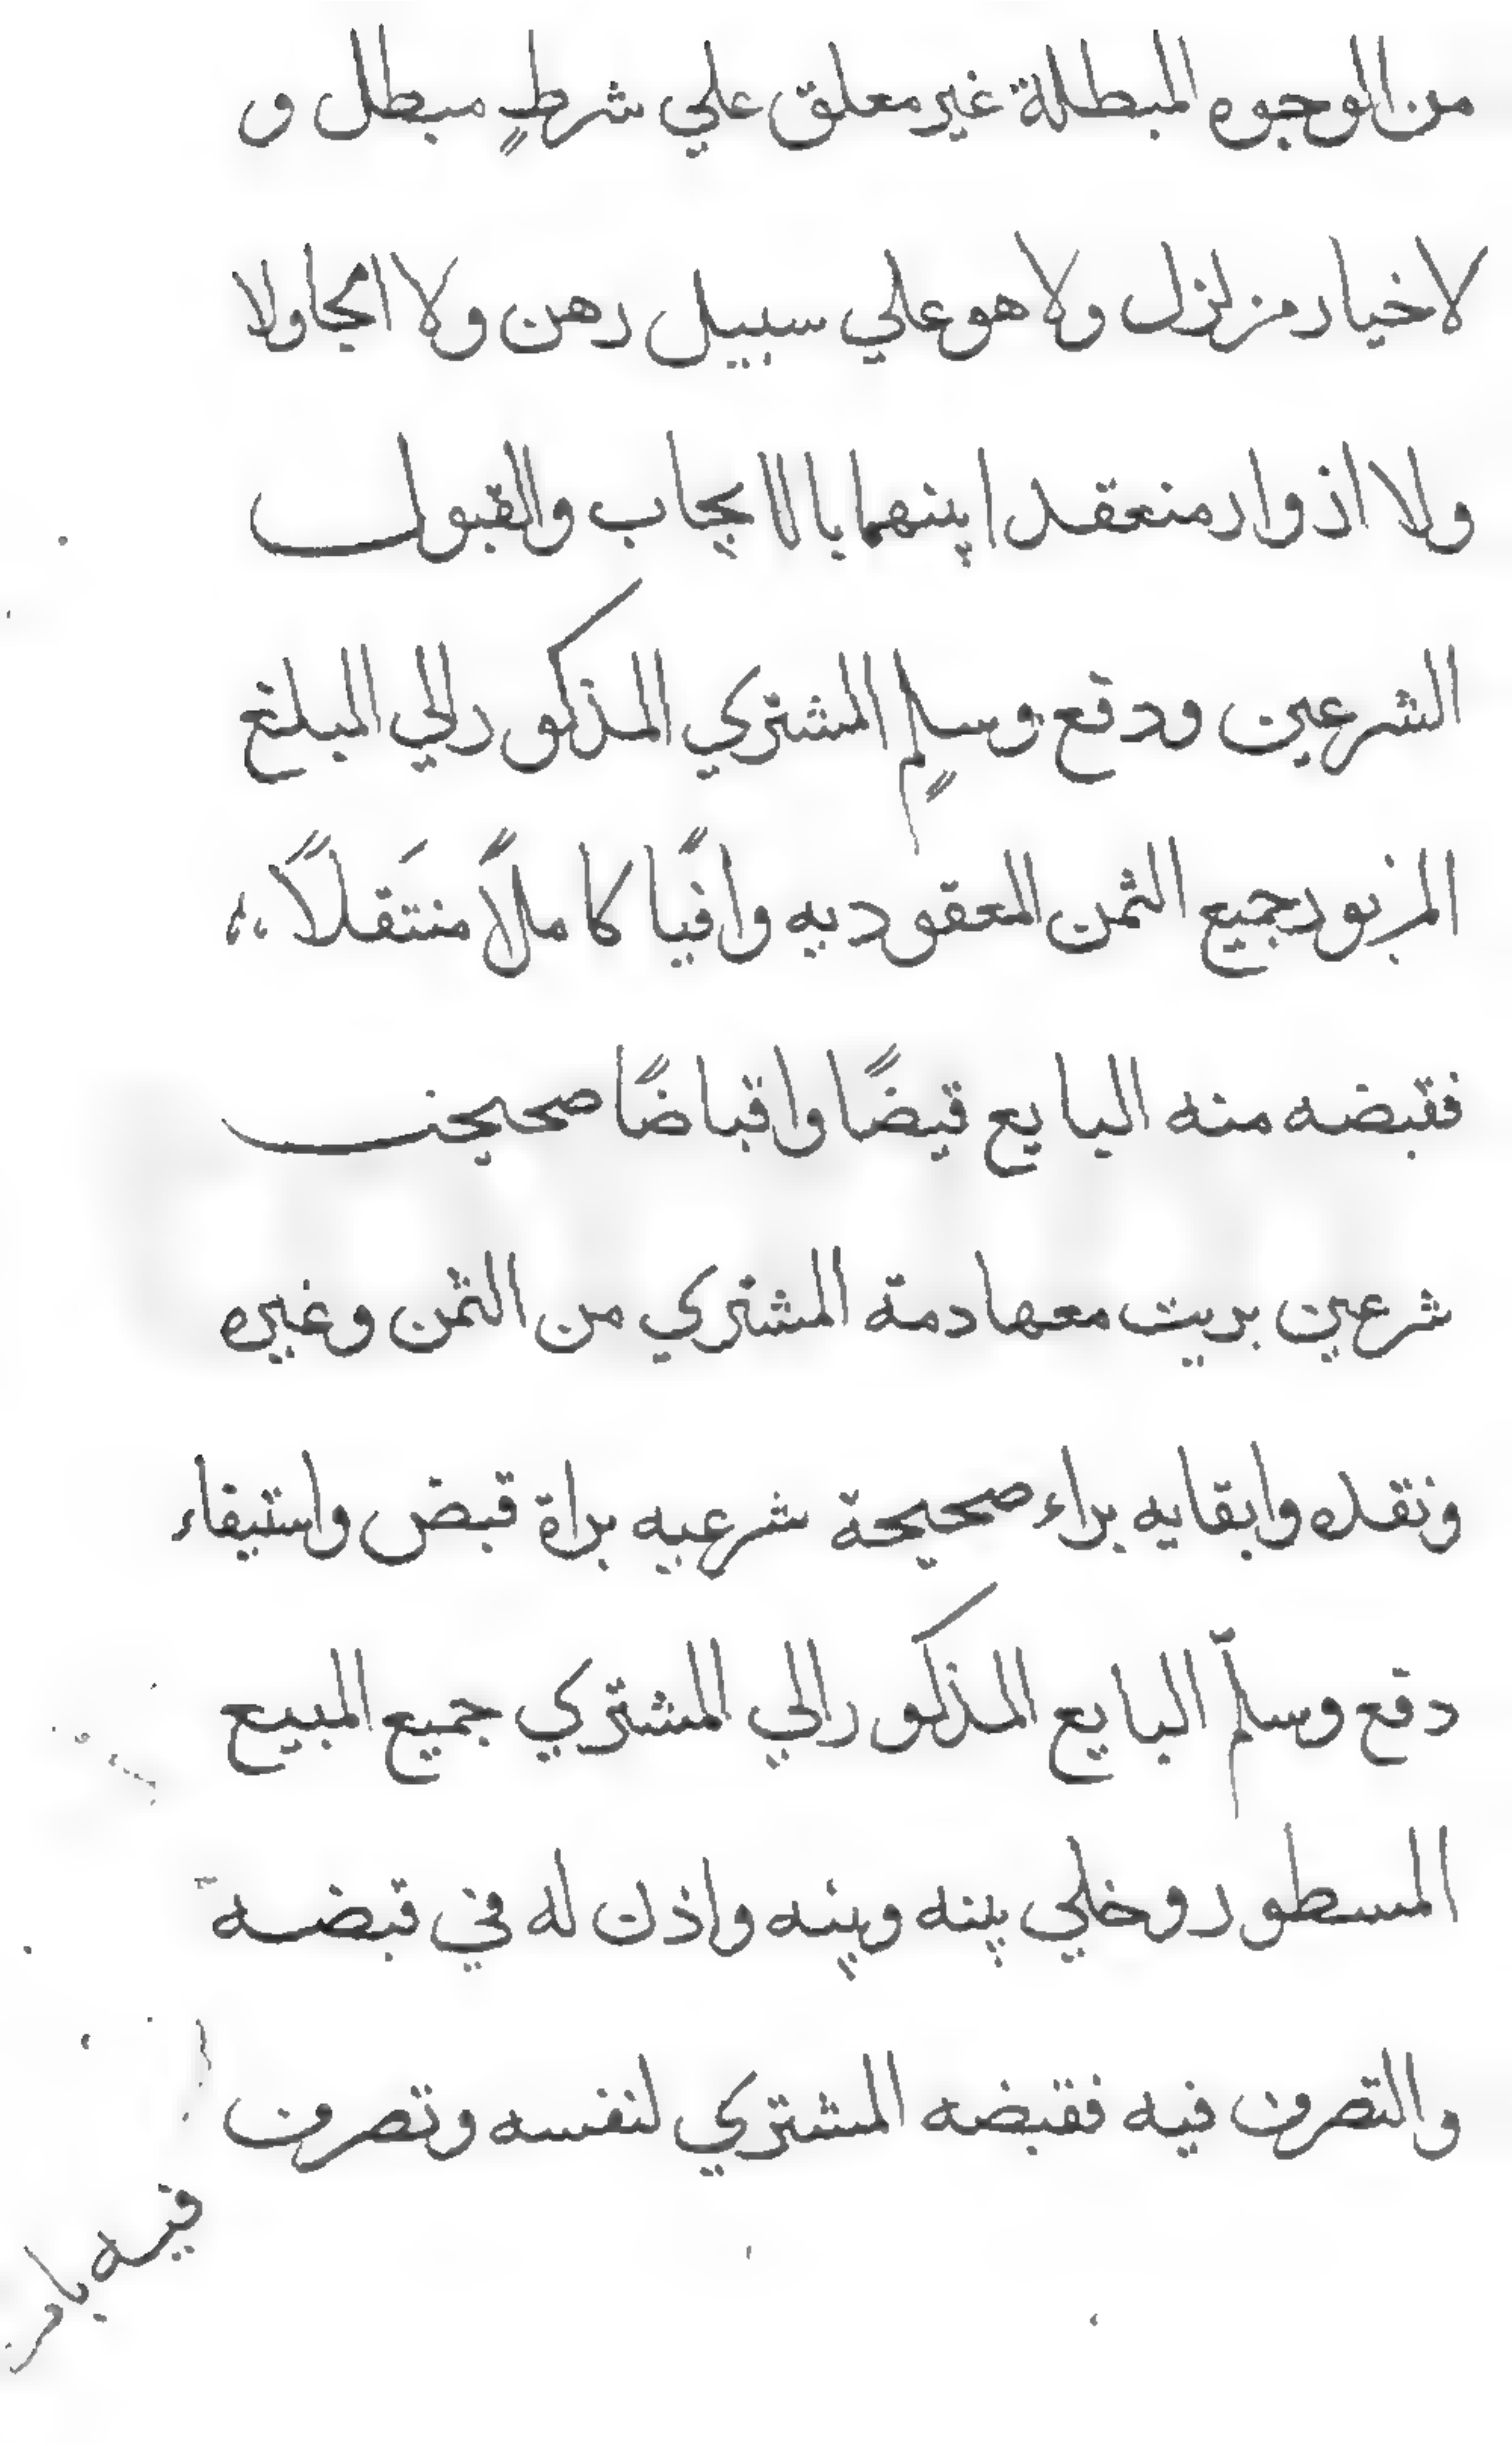 من الوجوه المبطلة غير معلق علي شرطٍ مبطل و
لا خيار مزلزل ولا هو علي سبيل رهن ولا الجا ولا
ولا اذ وار منعقد ا بينهما با الا يجاب والقبول
الشرعين ودفع وسلم المشتري المذكور الي البلغ
المزبور جميع الثمن المعقود به وافيًا كاملاً منتَقلاً
فقبضه منه البايع قبضًا واقباضًا صحيحن
شرعين بريت معها دمة المشتري من الثمن وغيره
ونقده وابقايه براء صحيحة شرعيه براة قبض واستيفاء
دفع وسلّم البايع المذكور الي المشتري جميع المبيع
المسطور وخلي بينه وبينه واذن له في قبضه
والتصرف فيه فقبضه المشتري لنفسه وتصرف
فيه بامر